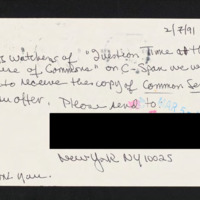 2/7/91
watchers of "Question Time at th
use of Commons" on C-Span we w
to receive the copy of Common Se
offer. Please send to
New York NY 10025
you.